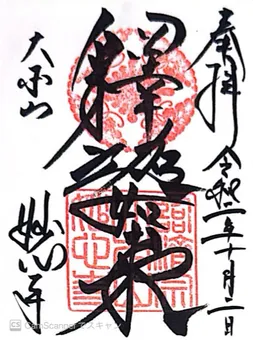 奉拝 令和二年十月二日
釋迦如来
大本山 妙心寺
CS CamScannerでスキャン